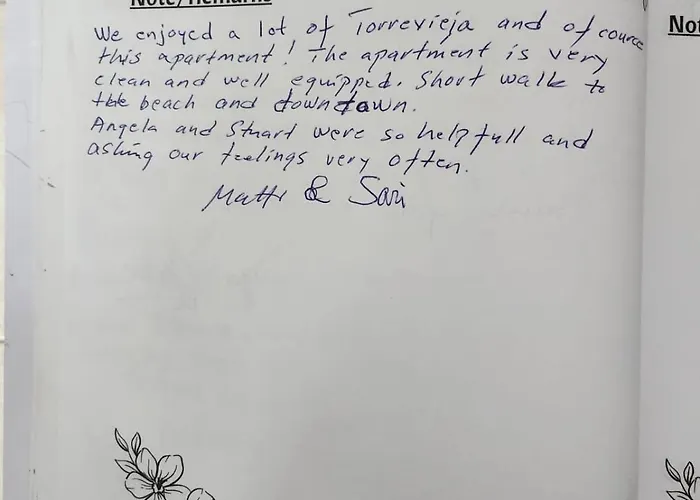 Note/Remarks
We enjoyed a lot of Torrevieja and of cource
this apartment! The apartment is very
clean and well equipped. Short walk to
the beach and downtown.
Angela and Stuart were so helpfull and
asking our feelings very often.
Matti & Sari
Not